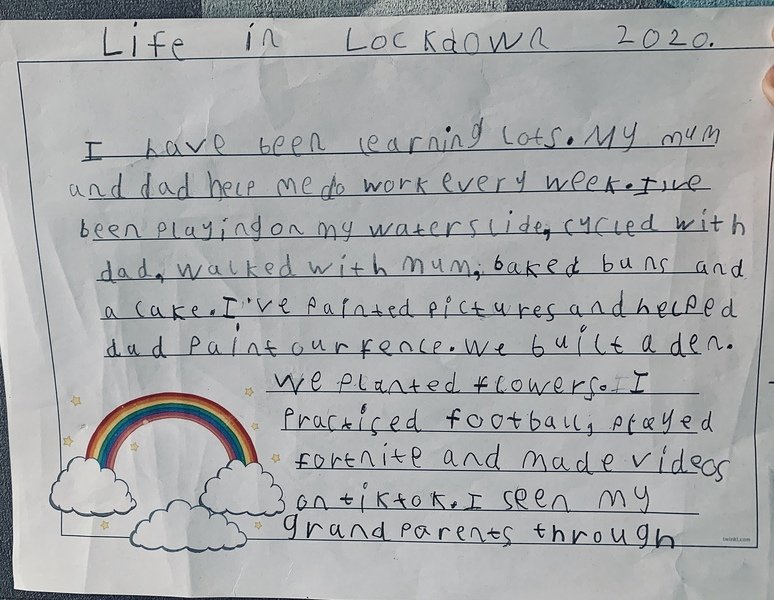 Life in Lockdown 2020.
I have been learning lots. My mum
and dad help me do work every week. I've
been playing on my waterslide, cycled with
dad, walked with mum, baked buns and
a cake. I've painted pictures and helped
dad paint our fence. We built a den.
We planted flowers. I
practised football, played
fortnite and made videos
on tiktok. I seen my
grandparents through
twinkl.com